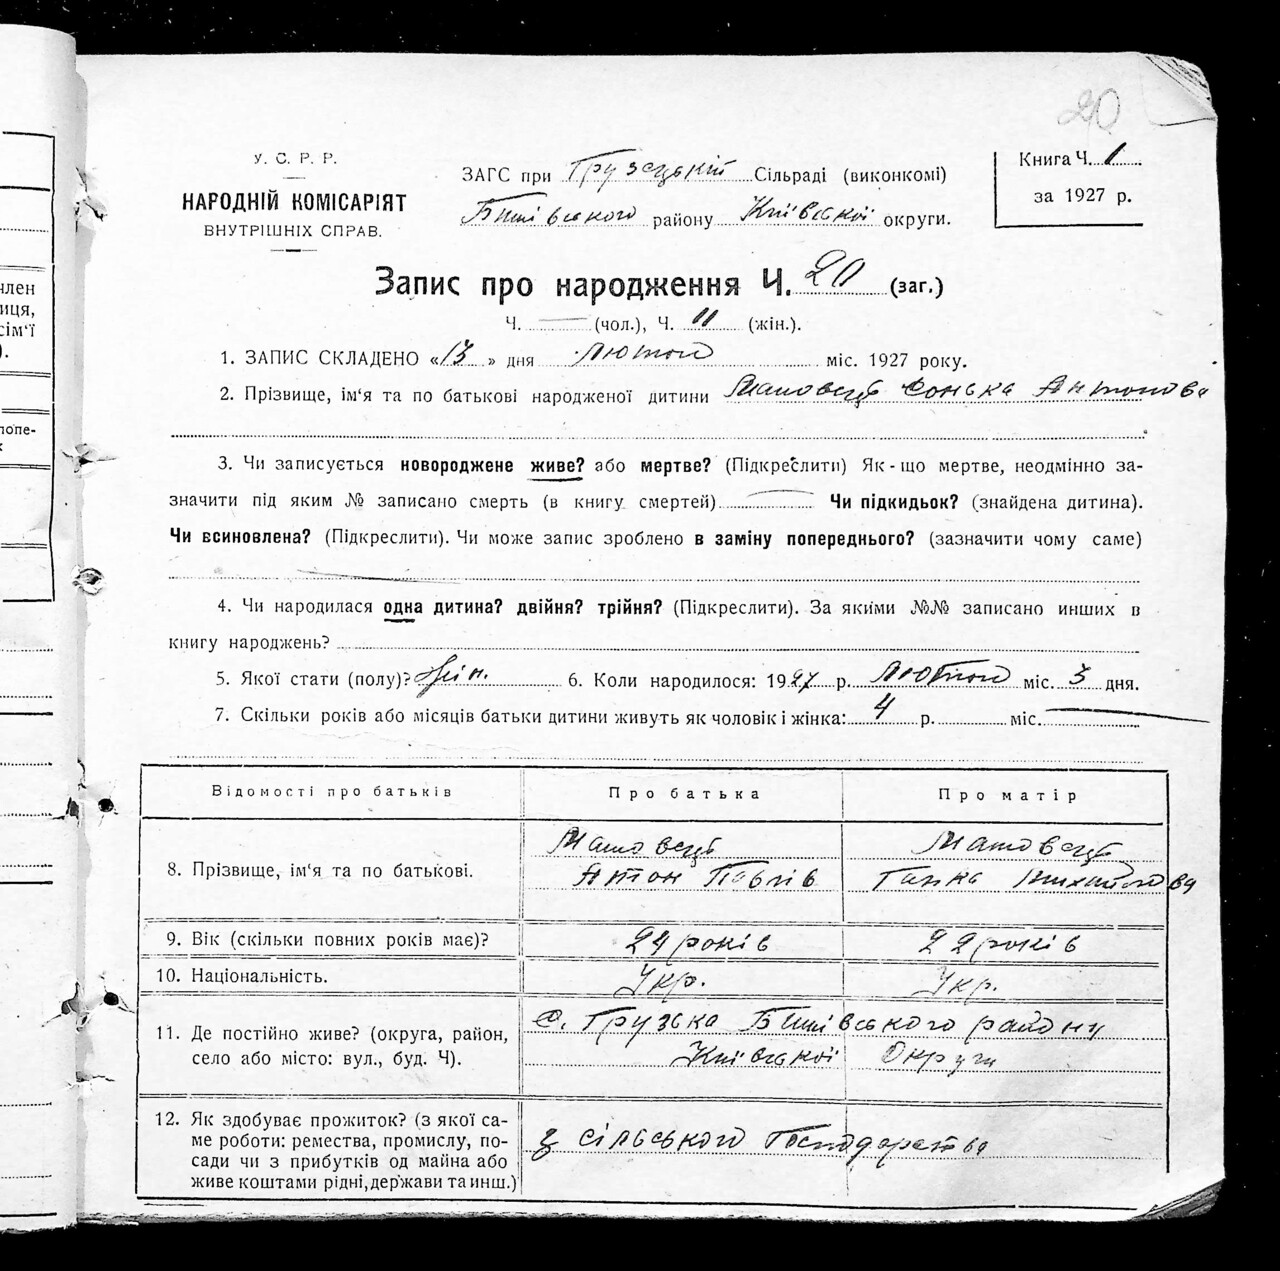 20
У. С. Р. Р.
НАРОДНІЙ КОМІСАРІЯТ
ВНУТРІШНІХ СПРАВ.
ЗАГС при Грузецькій Сільраді (виконкомі)
Бишівського району Київської округи.
Книга Ч. 1
за 1927 р.
Запис про народження Ч. 20 (заг.)
Ч. — (чол.), Ч. 11 (жін.).
1. ЗАПИС СКЛАДЕНО «13» дня Лютого міс. 1927 року.
2. Прізвище, ім'я та по батькові народженої дитини Сонька Антонова
3. Чи записується новороджене живе? або мертве? (Підкреслити) Як-що мертве, неодмінно за-
значити під яким № записано смерть (в книгу смертей) Чи підкидьок? (знайдена дитина).
Чи всиновлена? (Підкреслити). Чи може запис зроблено в заміну попереднього? (зазначити чому саме)
4. Чи народилася одна дитина? двійня? трійня? (Підкреслити). За якими №№ записано инших в
книгу народжень?
5. Якої стати (полу)? Жін. 6. Коли народилося: 1927 р. Лютого міс. 3 дня.
7. Скільки років або місяців батьки дитини живуть як чоловік і жінка: 4 р. міс.
Відомості про батьків Про батька Про матір
8. Прізвище, ім'я та по батькові.
Антон Павлів Ганка Михайлова
9. Вік (скільки повних років має)? 24 років 22 років
10. Національність. Укр. Укр.
11. Де постійно живе? (округа, район,
село або місто: вул., буд. Ч).
с. Грузька Бишівського району
Київської Округи
12. Як здобуває прожиток? (з якої са-
ме роботи: ремества, промислу, по-
сади чи з прибутків од майна або
живе коштами рідні, держави та инш.)
З сільського Господарства
член
иця,
сім'ї
).
попе-